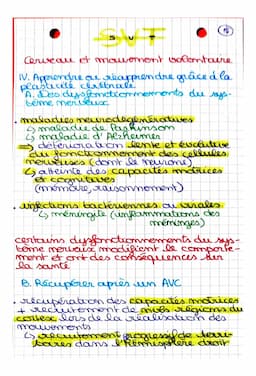 SVT
Cerveau et mouvement volontaire
IV. Apprendre ou réapprendre grâce à la
plasticité cérébrale
A. Les dysfonctionnements du sys-
tème nerveux
• maladies neurodégénératives
↳ maladie de Parkinson
↳ maladie d'Alzheimer
→ détérioration lente et évolutive
du fonctionnement des cellules
nerveuses (dont le neurone)
↳ atteinte des capacités motrices
et cognitives
(mémoire, raisonnement)
• infections bactériennes ou virales
↳ méningite (inflammations des
méninges)
certains dysfonctionnements du sys-
tème nerveux modifient le comporte-
ment et ont des conséquences sur
la santé
B. Récupérer après un AVC
• récupération des capacités motrices
+ recrutement de nvlls régions du
cortex lors de la réalisation des
mouvements
↳ recrutement progressif de
dans l'hémisphère droit